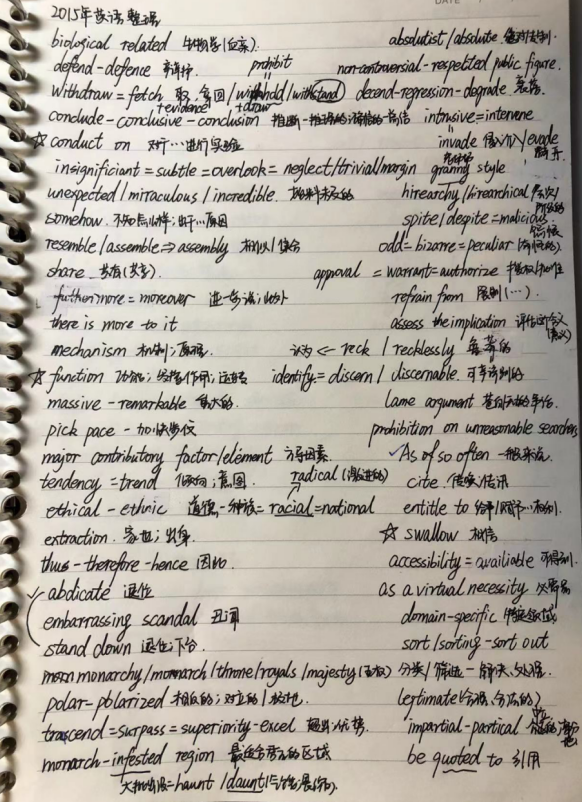 2015年英语整理
biological related 生物学(血亲).
absolutist/absolute 绝对专制.
defend-defence 辩护
prohibit
non-controversial-respebted public figure.
withdraw = fetch 取, 拿回/withhold/withstand
decend-regression-degrade 衰落
+evidence +draw
conclude-conclusive-conclusion
intrusive=intervene
☆ conduct on 对于…进行实验
invade 侵入/evade
insignificient = subtle = overlook = neglect/trivial/margin
granny style
unexpected/miraculous/incredible.
hirearchy/hirearchical
somehow. 不知怎么样; 由于…原因
spite/despite=malicious
resemble/assemble⇒assembly 相似/集合
odd=bizarre=peculiar
share 共有(共享)
approval = warrant=authorize 授权/批准
futhermore = moreover 进一步说; 此外
refrain from 限制(…).
there is more to it
assess the implication 评估这个含义(意义)
mechanism 机制; 原理.
认为 ← reck / recklessly 鲁莽的
☆ function 功能; 发挥作用; 运转
identify = discern/discernable. 可辨别的
massive-remarkable 重大的.
lame argument
pick pace - 加快步伐
prohibition on unreasonable searches
major contributory factor/element 主导因素.
✓As of so often 一般来说.
tendency = trend 倾向; 意图.
radical (激进的)
cite. 传唤/传讯
ethical-ethnic 道德-种族= racial=national
entitle to
extraction. 家世; 出身.
☆ swallow 相信
thus-therefore-hence 因此
accessibility = availiable 可得到.
abdicate 退位
as a virtual necessity 必需品
embarrassing scandal 丑闻
domain-specific 特定领域
stand down 退位; 下台.
sort/sorting-sort out
monarchy/monarch/throne/royals/majesty(王权)
分类/筛选-解决, 处理.
polar-pblarized 相反的; 对立的/极地.
legtimate(合理, 合法的)
trascend=surpass=superiority-excel 超越; 优势.
impartial-partical
monarch-infested region
be quoted to 引用
=haunt/daunt/